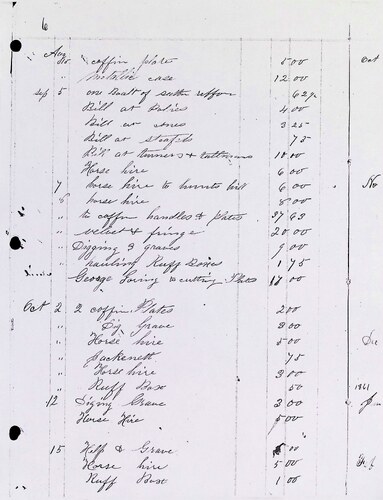 6
Aug
" coffin plate 5 00
" metalic case 12 00
Sep 5 one Boalt of 62½
Bill at 4 00
Bill at 3 25
Bill at 75
Bill at & 11 00
Horse hire 6 00
7 horse hire to 6 00
8 horse hire 8 00
" to coffin handles & plates 37 63
" velvet & fringe 20 00
" Digging 3 graves 9 00
" hauling Ruff Boxes 1 75
George cutting Plates 12 00
Oct 2 2 coffin Plates 2 00
" Dig Grave 3 00
" Horse hire 5 00
" 75
" Horse hire 3 00
" Ruff Box 50
12 Diging Grave 3 00
Horse Hire 5 00
15 Half & Grave 5 00
Horse hire 5 00
Ruff Box 1 00
Oct
No
1861